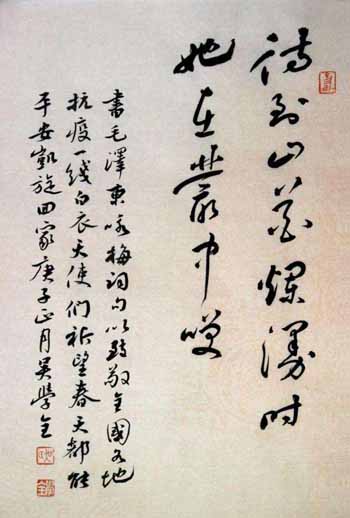 待到山花爛漫时
她在叢中咲
書毛澤東咏梅詞句以致敬全國各地
抗疫一线白衣天使们祈望春天都能
平安凱旋回家庚子正月吳學全